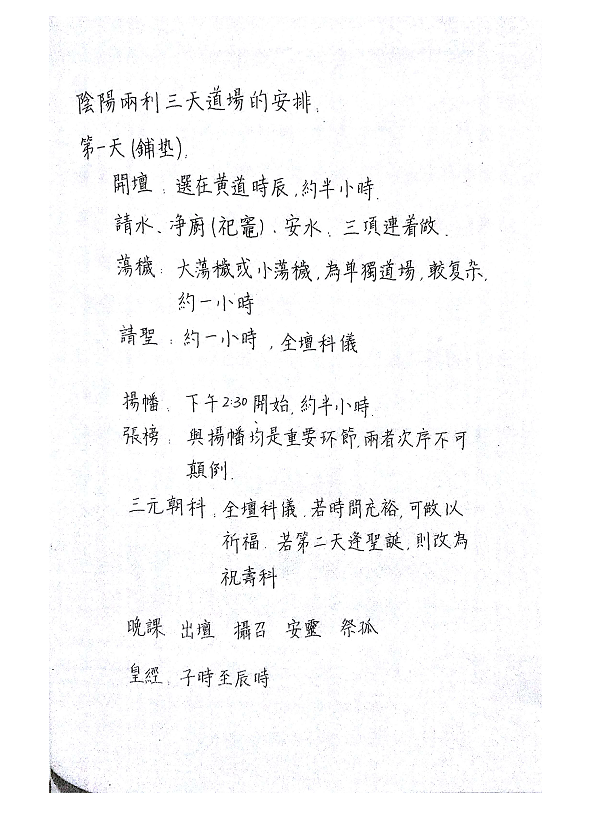 陰陽兩利三天道場的安排.
第一天(鋪垫).
開壇：選在黄道時辰,約半小時.
請水、净廚(祀竈)、安水. 三項連着做.
蕩穢：大蕩穢或小蕩穢,為单獨道場,較复杂.
約一小時
請聖：約一小時,全壇科儀
揚幡：下午2:30開始,約半小時.
張榜：與揚幡均是重要环節,兩者次序不可
顛倒.
三元朝科：全壇科儀.若時間充裕,可做以
祈福. 若第二天逢聖誕,則改為
祝壽科
晚課 出壇 攝召 安靈 祭孤
皇經：子時至辰時